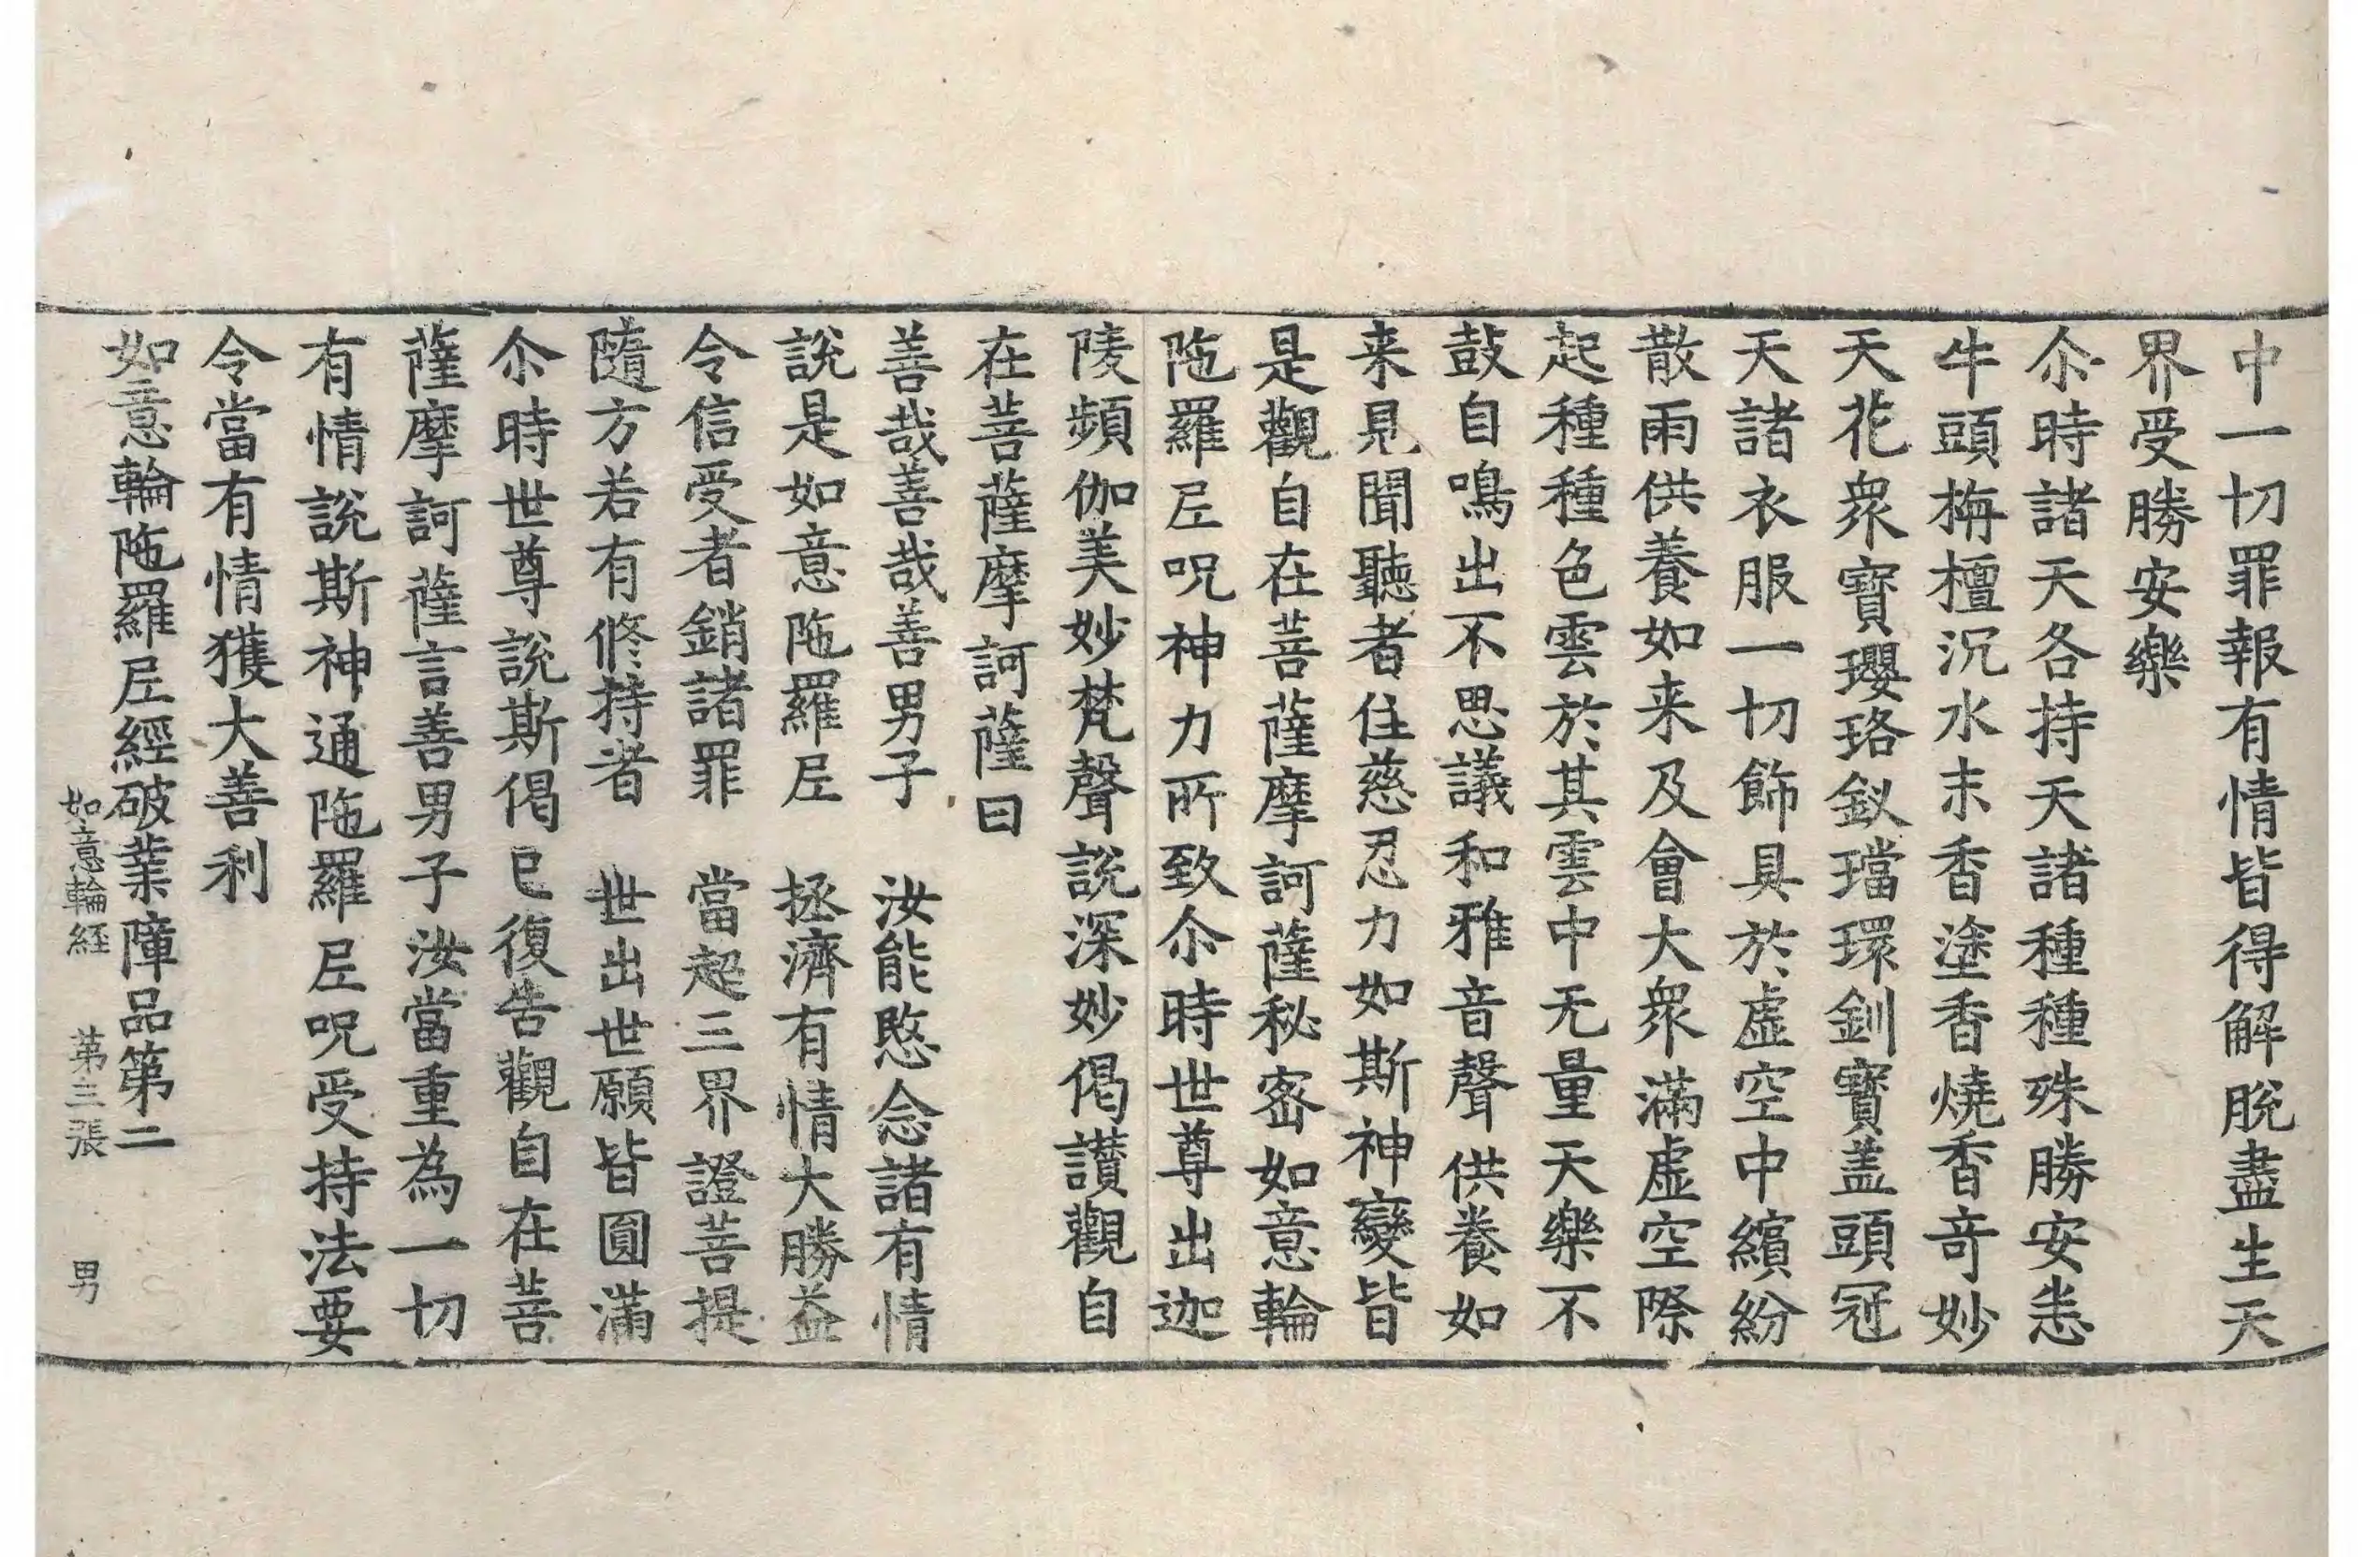 中一切罪報有情皆得解脫盡生天
界受勝安樂
尒時諸天各持天諸種種殊勝安悉
牛頭栴檀沉水末香塗香燒香奇妙
天花衆寶瓔珞釵璫環釧寶盖頭冠
天諸衣服一切飾具於虛空中繽紛
散雨供養如来及會大衆滿虛空際
起種種色雲於其雲中无量天樂不
鼓自鳴出不思議和雅音聲供養如
来見聞聽者住慈忍力如斯神變皆
是觀自在菩薩摩訶薩秘密如意輪
陁羅尼呪神力所致尒時世尊出迦
陵頻伽美妙梵聲說深妙偈讃觀自
在菩薩摩訶薩曰
善哉善哉善男子　汝能愍念諸有情
說是如意陁羅尼　拯濟有情大勝益
令信受者銷諸罪　當起三界證菩提
隨方若有修持者　世出世願皆圓滿
尒時世尊說斯偈已復告觀自在菩
薩摩訶薩言善男子汝當重為一切
有情說斯神通陁羅尼呪受持法要
令當有情獲大善利
如意輪陁羅尼經破業障品第二
如意輪経　苐三張　男